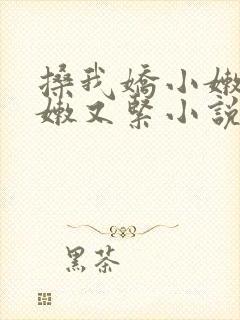 搡我嬌小嫩
嫩又緊小說
黑茶